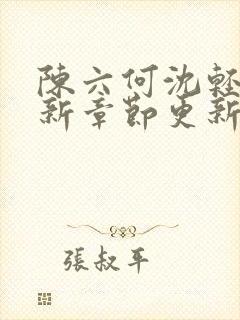 陳六何沈輕
新章節更新
張叔平